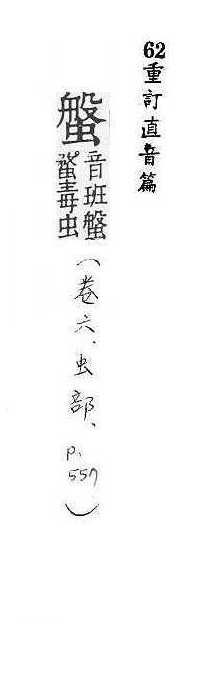 62重訂直音篇
螌音班螌蝥毒虫（卷六、虫部、p.557）